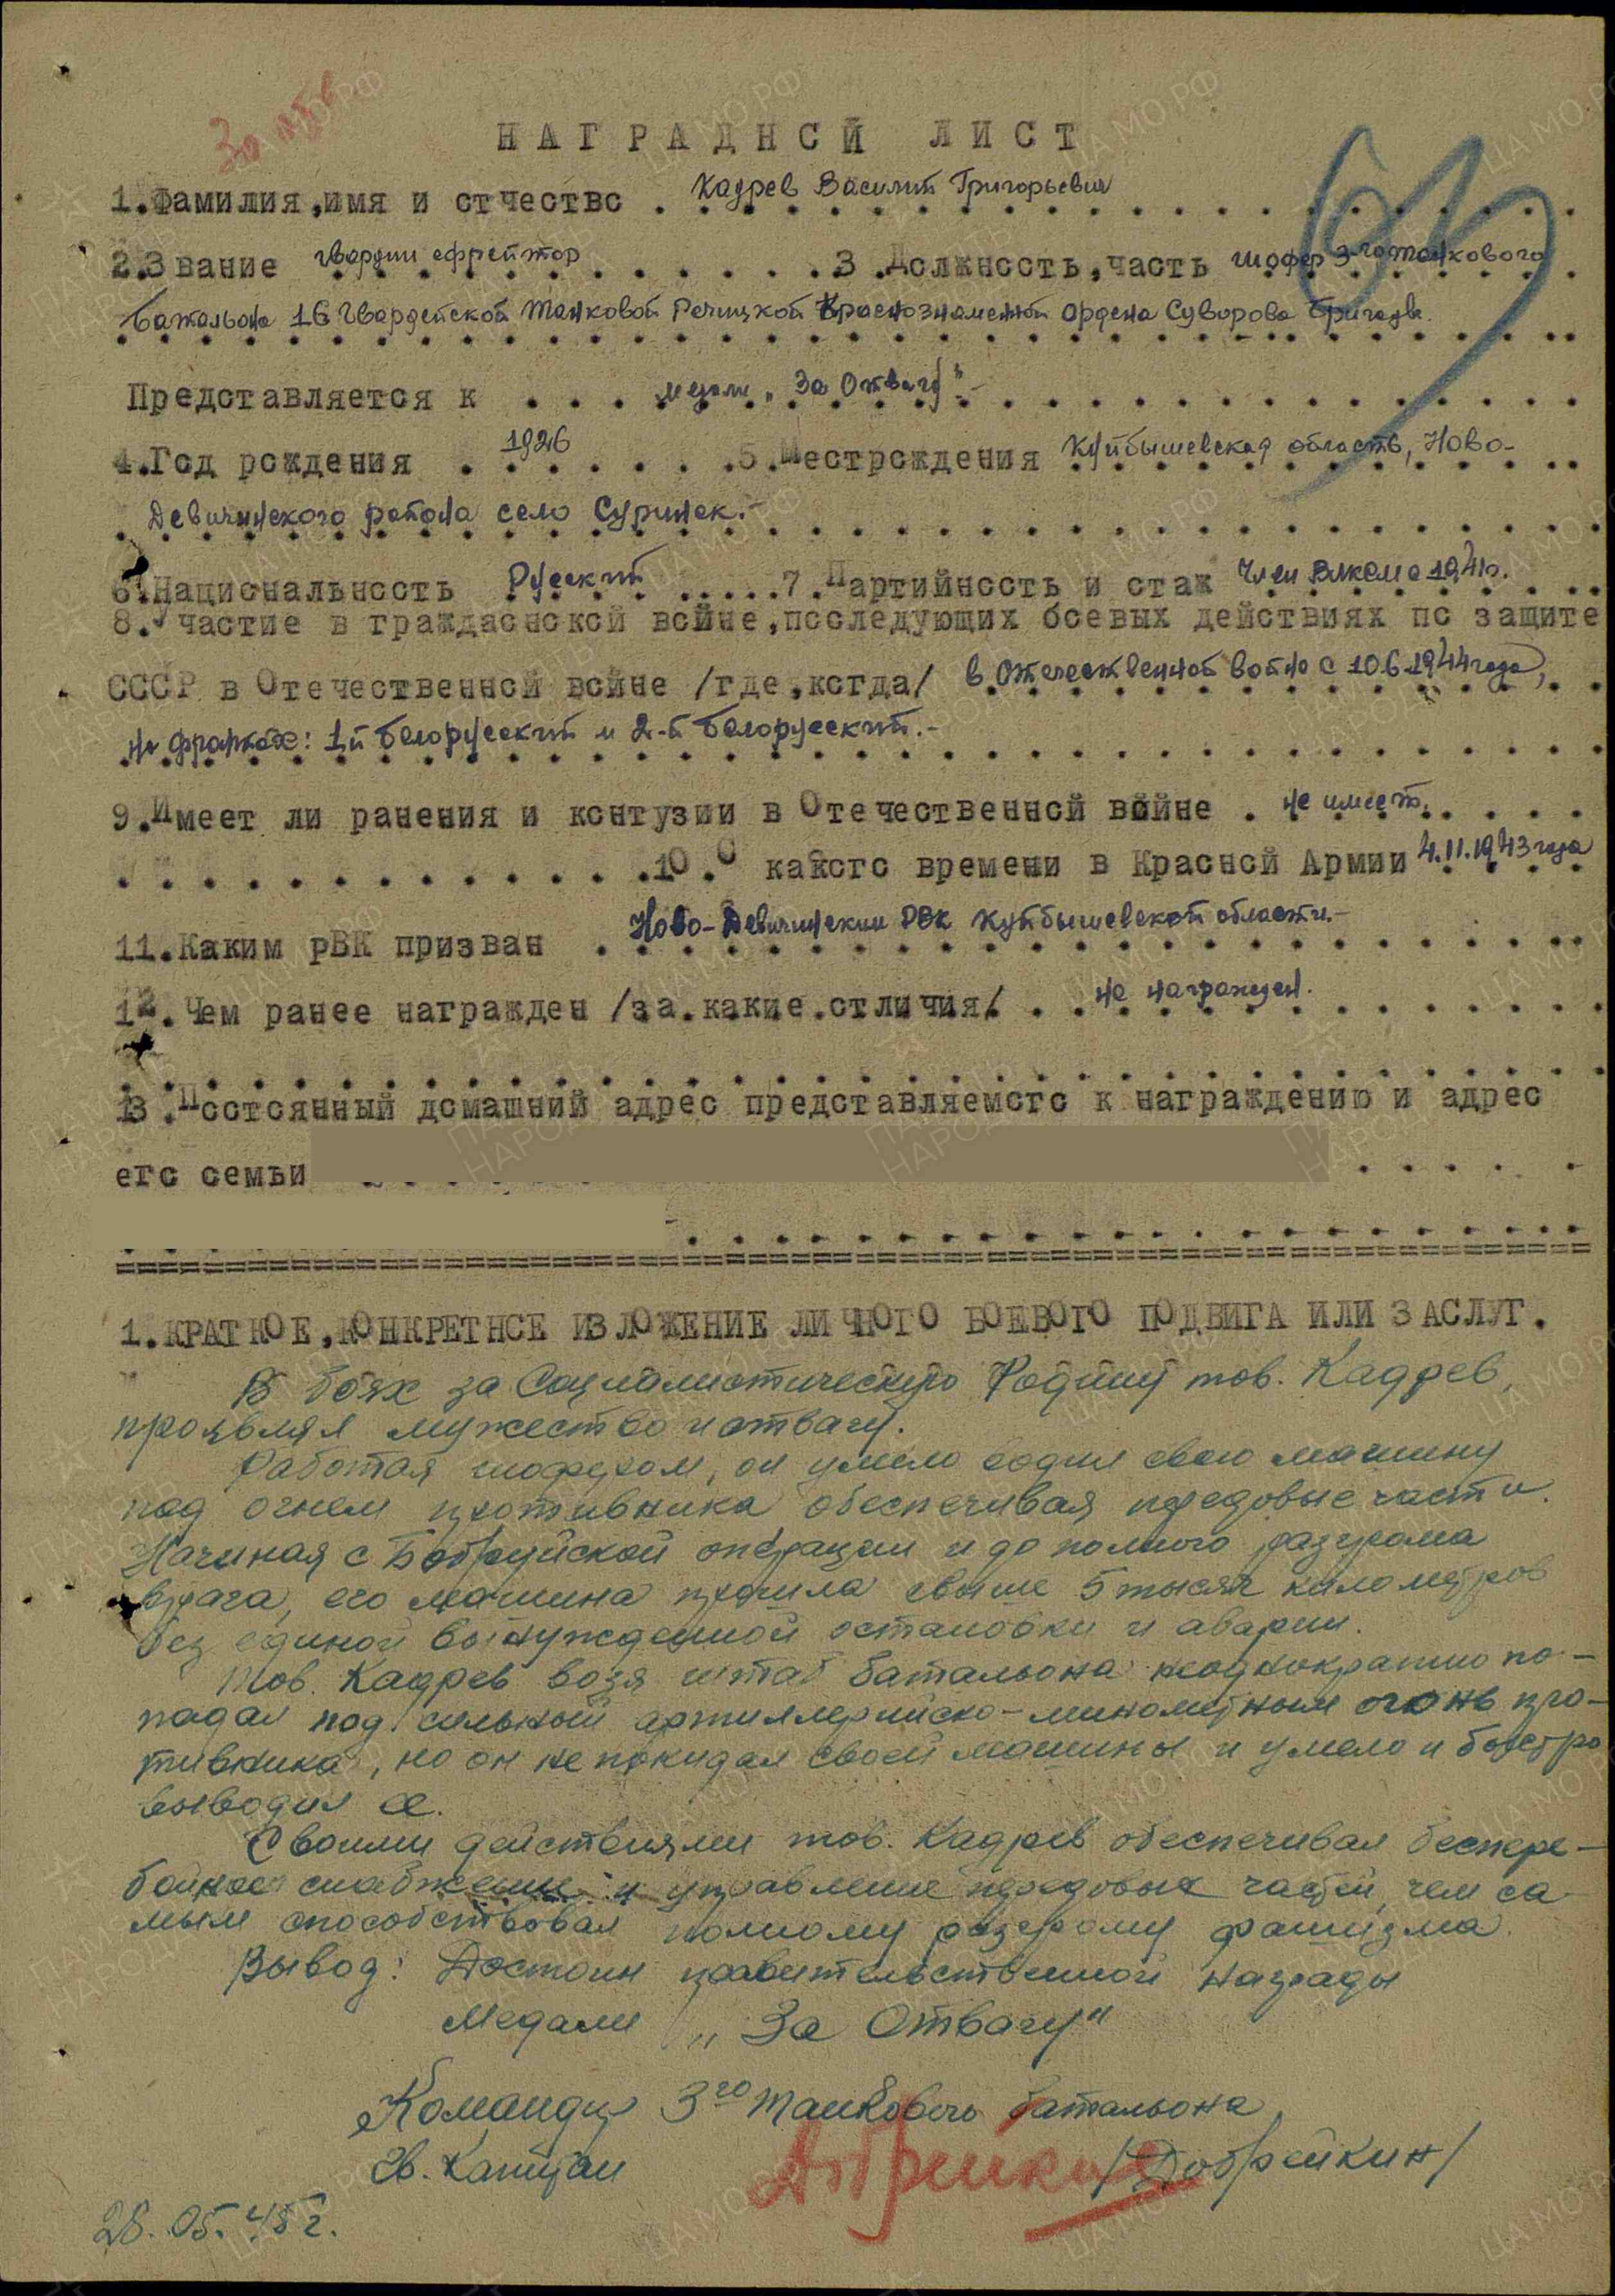 НАГРАДНСЙ ЛИСТ
1.Фамилия,имя и стчествс Кадрев Василий Григорьевич
2.Звание гвардии ефрейтор 3.Должнссть,часть шофер 3-го танкового
батальона 16 Гвардейской Танковой Речицкой Краснознаменной ордена Суворова Бригады.
Представляется к медали „За Отвагу"-
4.Гсд рсждения 1926 5.Местрсждения Куйбышевская область, Ново-
Девичинского района село Суринск.-
6.Нацисналънссть Русский 7.Партийнссть и стаж Член ВЛКСМ с 1941г.
8.Участие в граждаснсксй всйне,псследующих бсевых действиях пс защите
СССР в Отечественнсй всйне /где,кстда/ в Отечественной войне с 10.6.1944 года,
на фронтах: 1й Белорусский и 2-й Белорусский.-
9.Имеет ли ранения и кснтузии в Отечественнсй войне не имеет.
10.С какогс времени в Краснсй Армии 4.11.1943 года
11.Каким рВК призван Ново-Девичинским РВК Куйбышевской области.-
12.Чем ранее награжден /за.какие.стличия/ не награжден.
13.Псстсянный дсмашний адрес представляемсгс к награждению и адрес
егс семьи
1.КРАТКОЕ,КОНКРЕТНСЕ ИЗЛОЖЕНИЕ ЛИЧНОГО БОЕВОГО ПОДВИГА ИЛИ ЗАСЛУГ.
В боях за Социалистическую Родину тов. Кадрев,
проявлял мужество и отвагу.
Работая шофером, он умело водил свою машину
под огнем противника обеспечивая передовые части.
Начиная с Бобруйской операции и до полного разгрома
врага, его машина прошла свыше 5 тысяч километров
без единой вынужденной остановки и аварии.
Тов. Кадрев возя штаб батальона неоднократно по-
падал под сильный артиллерийско-минометным огонь про-
тивника, но он не покидал своей машины и умело и быстро
выводил ее.
Своими действиями тов. Кадрев обеспечивал беспере-
бойное снабжение и управление передовых частей, чем са-
мым способствовал полному разгрому фашизма.
Вывод: Достоин правительственной награды
медали „За Отвагу"
Командир 3го танкового батальона
Гв. Капитан /Добрейкин/
28.05.45 г.